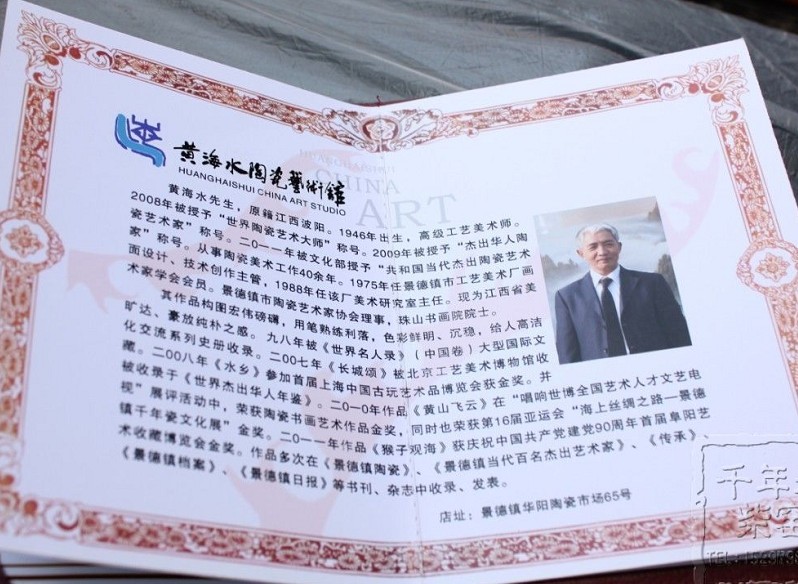 黄海水陶瓷藝術館
HUANGHAISHUI CHINA ART STUDIO
HUANGHAISHUI
CHINA
ART
黄海水先生，原籍江西波阳。1946年出生，高级工艺美术师。
2008年被授予“世界陶瓷艺术大师”称号。2009年被授予“杰出华人陶
瓷艺术家”称号。二0一一年被文化部授予“共和国当代杰出陶瓷艺术
家”称号。从事陶瓷美术工作40余年。1975年任景德镇市工艺美术厂画
面设计、技术创作主管，1988年任该厂美术研究室主任。现为江西省美
术家学会会员。景德镇市陶瓷艺术家协会理事，珠山书画院院士。
其作品构图宏伟磅礴，用笔熟练利落，色彩鲜明、沉稳，给人高洁
旷达、豪放纯朴之感。九八年被《世界名人录》（中国卷）大型国际文
化交流系列史册收录。二00七年《长城颂》被北京工艺美术博物馆收
藏。二00八年《水乡》参加首届上海中国古玩艺术品博览会获金奖。并
被收录于《世界杰出华人年鉴》。二0一0年作品《黄山飞云》在“唱响世博全国艺术人才文艺电
视”展评活动中，荣获陶瓷书画艺术作品金奖，同时也荣获第16届亚运会“海上丝绸之路—景德
镇千年瓷文化展”金奖。二0一一年作品《猴子观海》获庆祝中国共产党建党90周年首届阜阳艺
术收藏博览会金奖。作品多次在《景德镇陶瓷》、《景德镇当代百名杰出艺术家》、《传承》、
《景德镇档案》、《景德镇日报》等书刊、杂志中收录、发表。
店址：景德镇华阳陶瓷市场65号
千年
紫